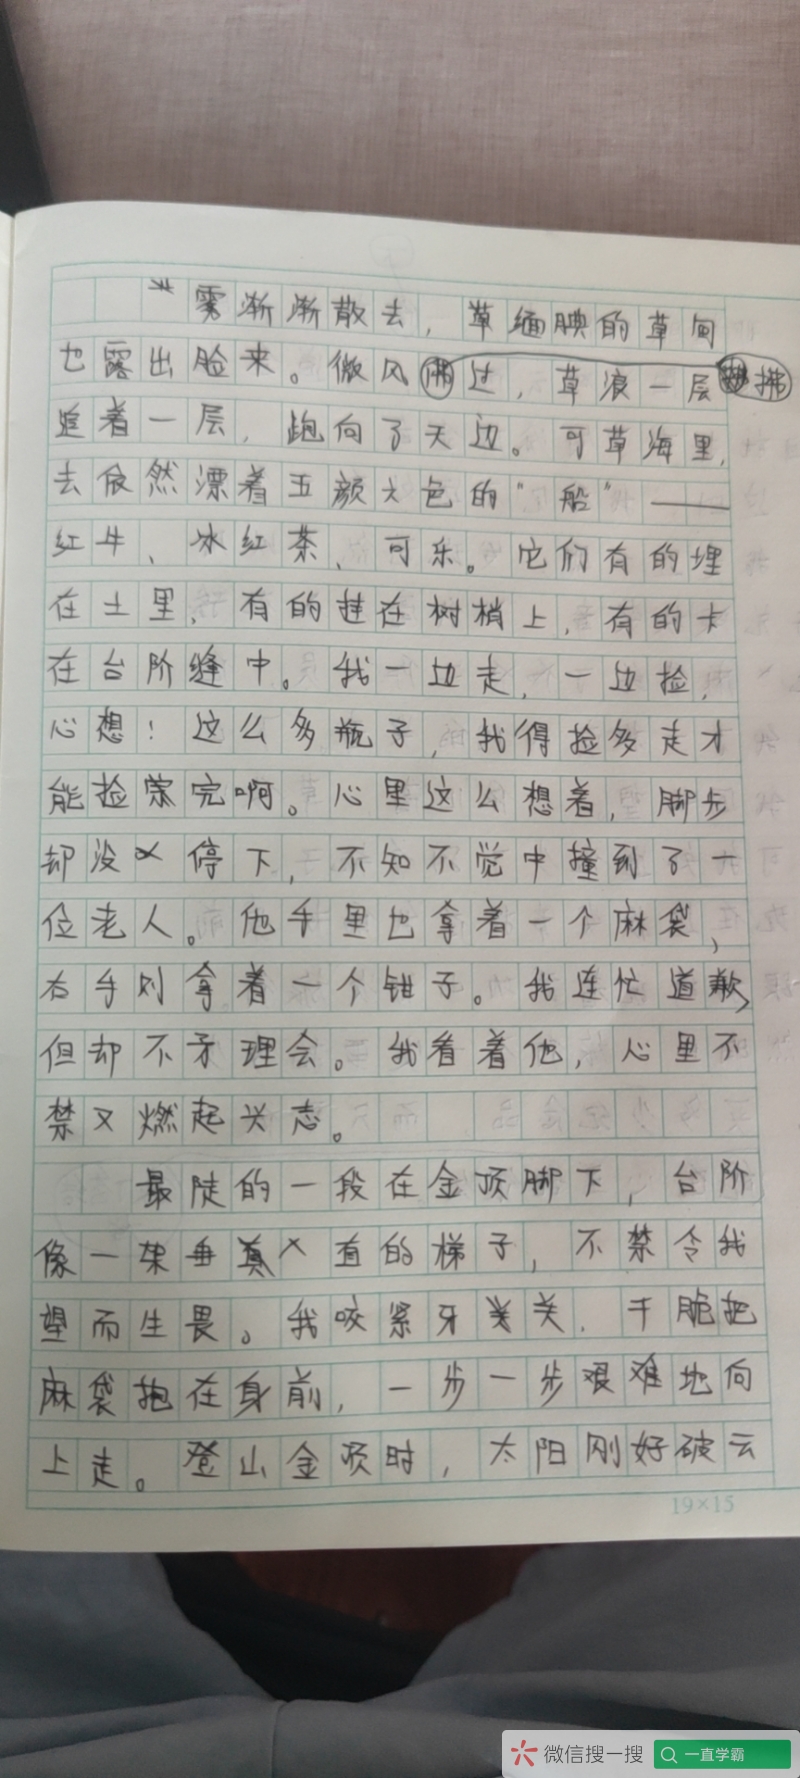 雾渐渐散去，草缅腆的草甸
也露出脸来。微风拂过，草浪一层
追着一层，跑向了天边。可草海里，
去依然漂着五颜六色的“船”——
红牛、冰红茶、可乐。它们有的埋
在土里，有的挂在树梢上，有的卡
在台阶缝中。我一边走，一边捡，
心想：这么多瓶子，我得捡多走才
能捡完啊。心里这么想着，脚步
却没停下，不知不觉中撞到了一
位老人。他手里也拿着一个麻袋，
右手则拿着一个钳子。我连忙道歉，
但却不予理会。我看着他，心里不
禁又燃起兴志。
最陡的一段在金顶脚下，台阶
像一架垂直的梯子，不禁令我
望而生畏。我咬紧牙关，干脆把
麻袋抱在身前，一步一步艰难地向
上走。登山金顶时，太阳刚好破云
19×15
微信搜一搜 一直学霸